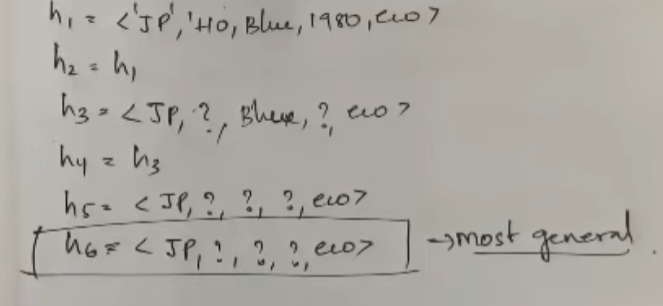 h1 = <'JP', 'HO, Blue, 1980, eco>
h2 = h1
h3 = <JP, ?, Blue, ?, eco>
h4 = h3
h5 = <JP, ?, ?, ?, eco>
h6 = <JP, ?, ?, ?, eco> → most general.